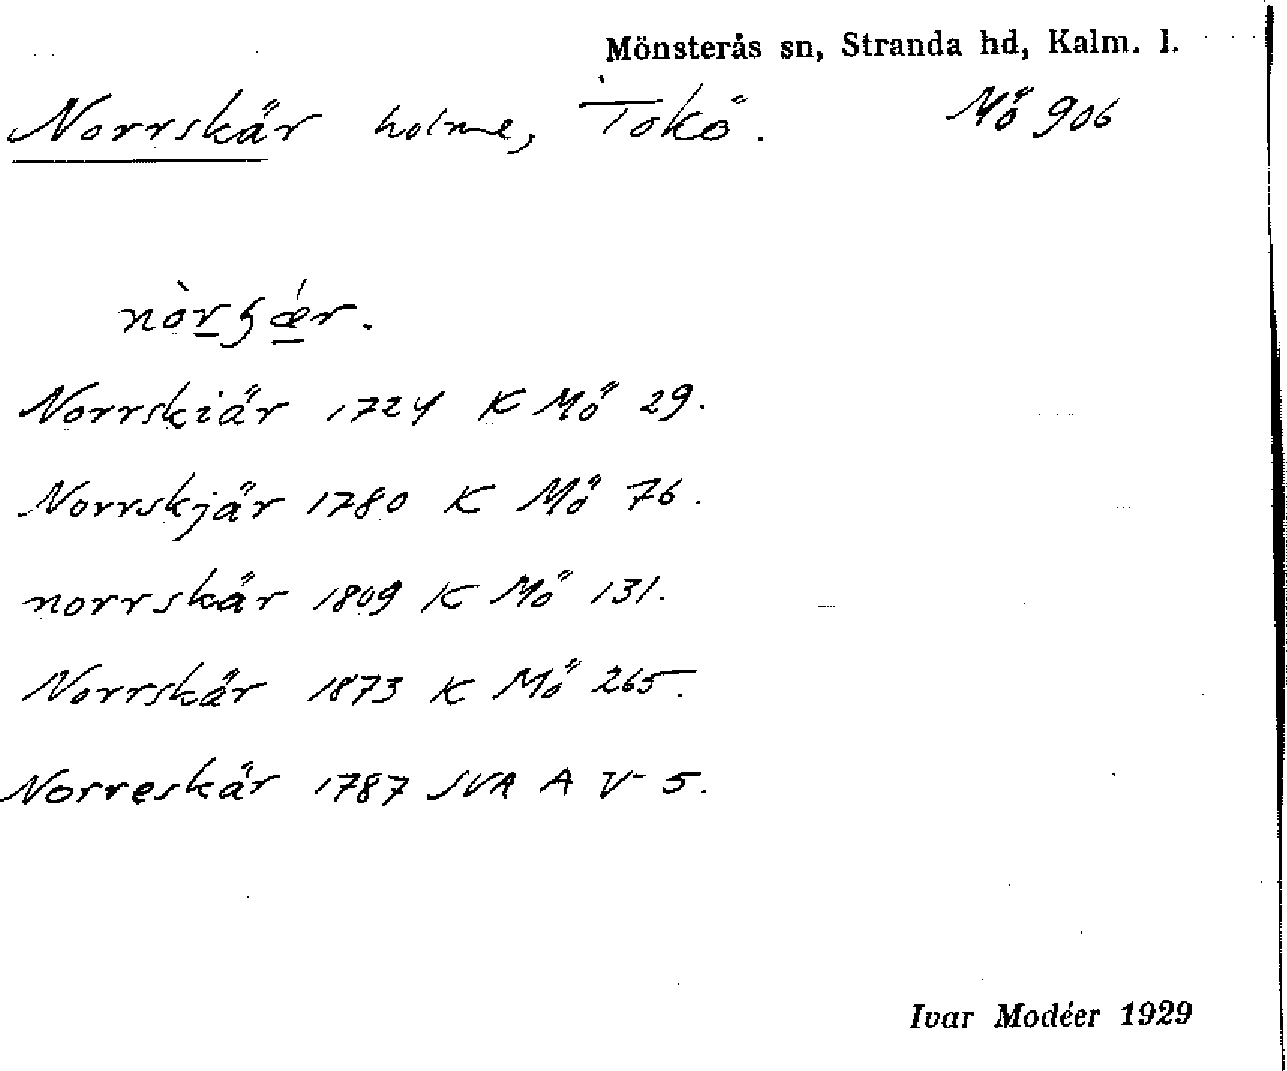 Mönsterås sn, Stranda hd, Kalm. l.
Norrskär holme, Tokö. Mö 906
Norrskiär 1724 K Mö 29.
Norrskjär 1780 K Mö 76.
norrskär 1809 K Mö 131.
Norrskär 1873 K Mö 265.
Norreskär 1787 JVA A V 5.
Ivar Modéer 1929